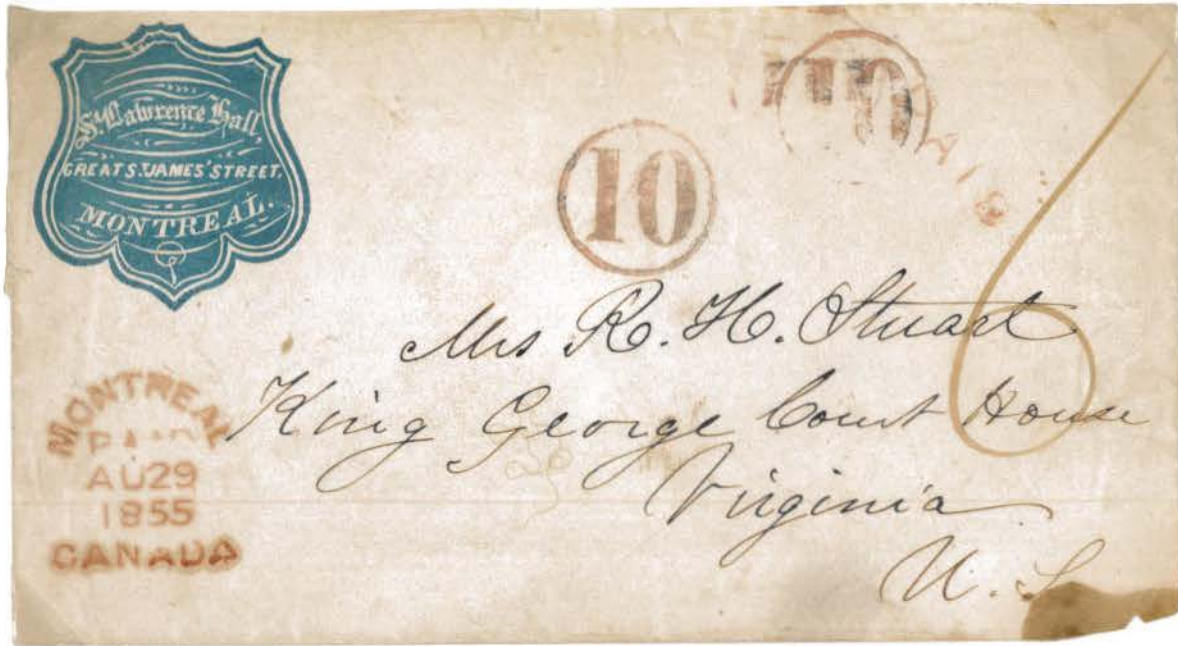 St. Lawrence Hall,
GREAT ST. JAMES' STREET.
MONTREAL.
10
10
6
Mrs R. H. Stuart
King George Court House
Virginia
U. S.
MONTREAL
PAID
AU 29
1855
CANADA